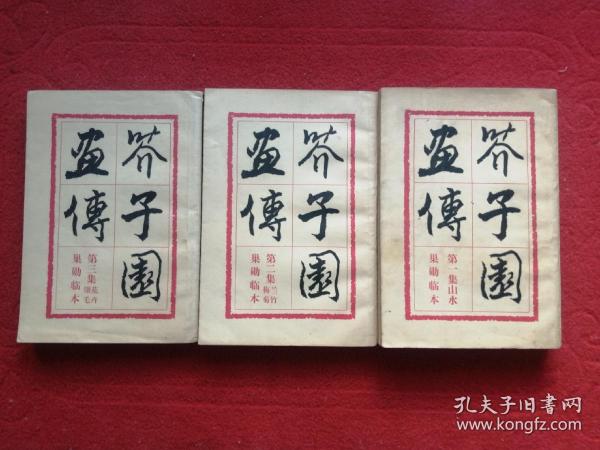 芥子園
畫傳
第一集山水
巢勋临本
芥子園
畫傳
第二集兰竹
梅菊
巢勋临本
芥子園
畫傳
第三集花卉
翎毛
巢勋临本
孔夫子旧書网
www.kongfz.com